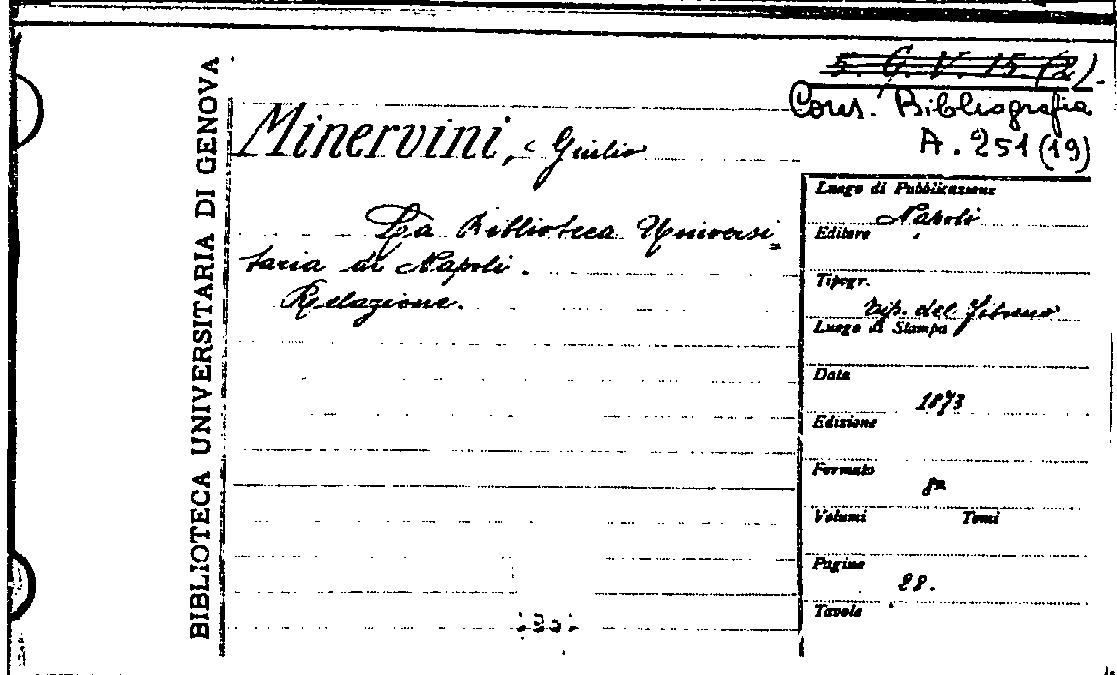 BIBLIOTECA UNIVERSITARIA DI GENOVA
5. G. V. 15 (2).
Cons. Bibliografia
A. 251 (19)
Minervini, Giulio
La Biblioteca Universi=
taria di Napoli.
Relazione.
Luogo di Pubblicazione
Napoli
Editore
Tipogr.
Tip. del Fibreno
Luogo di Stampa
Data
1873
Edizione
Formato
8º
Volumi Tomi
Pagine
28.
Tavole